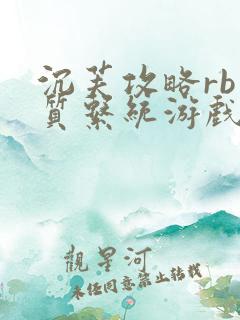 沉芙攻略rb
质系统游戏
觀星河
未经同意禁止转载